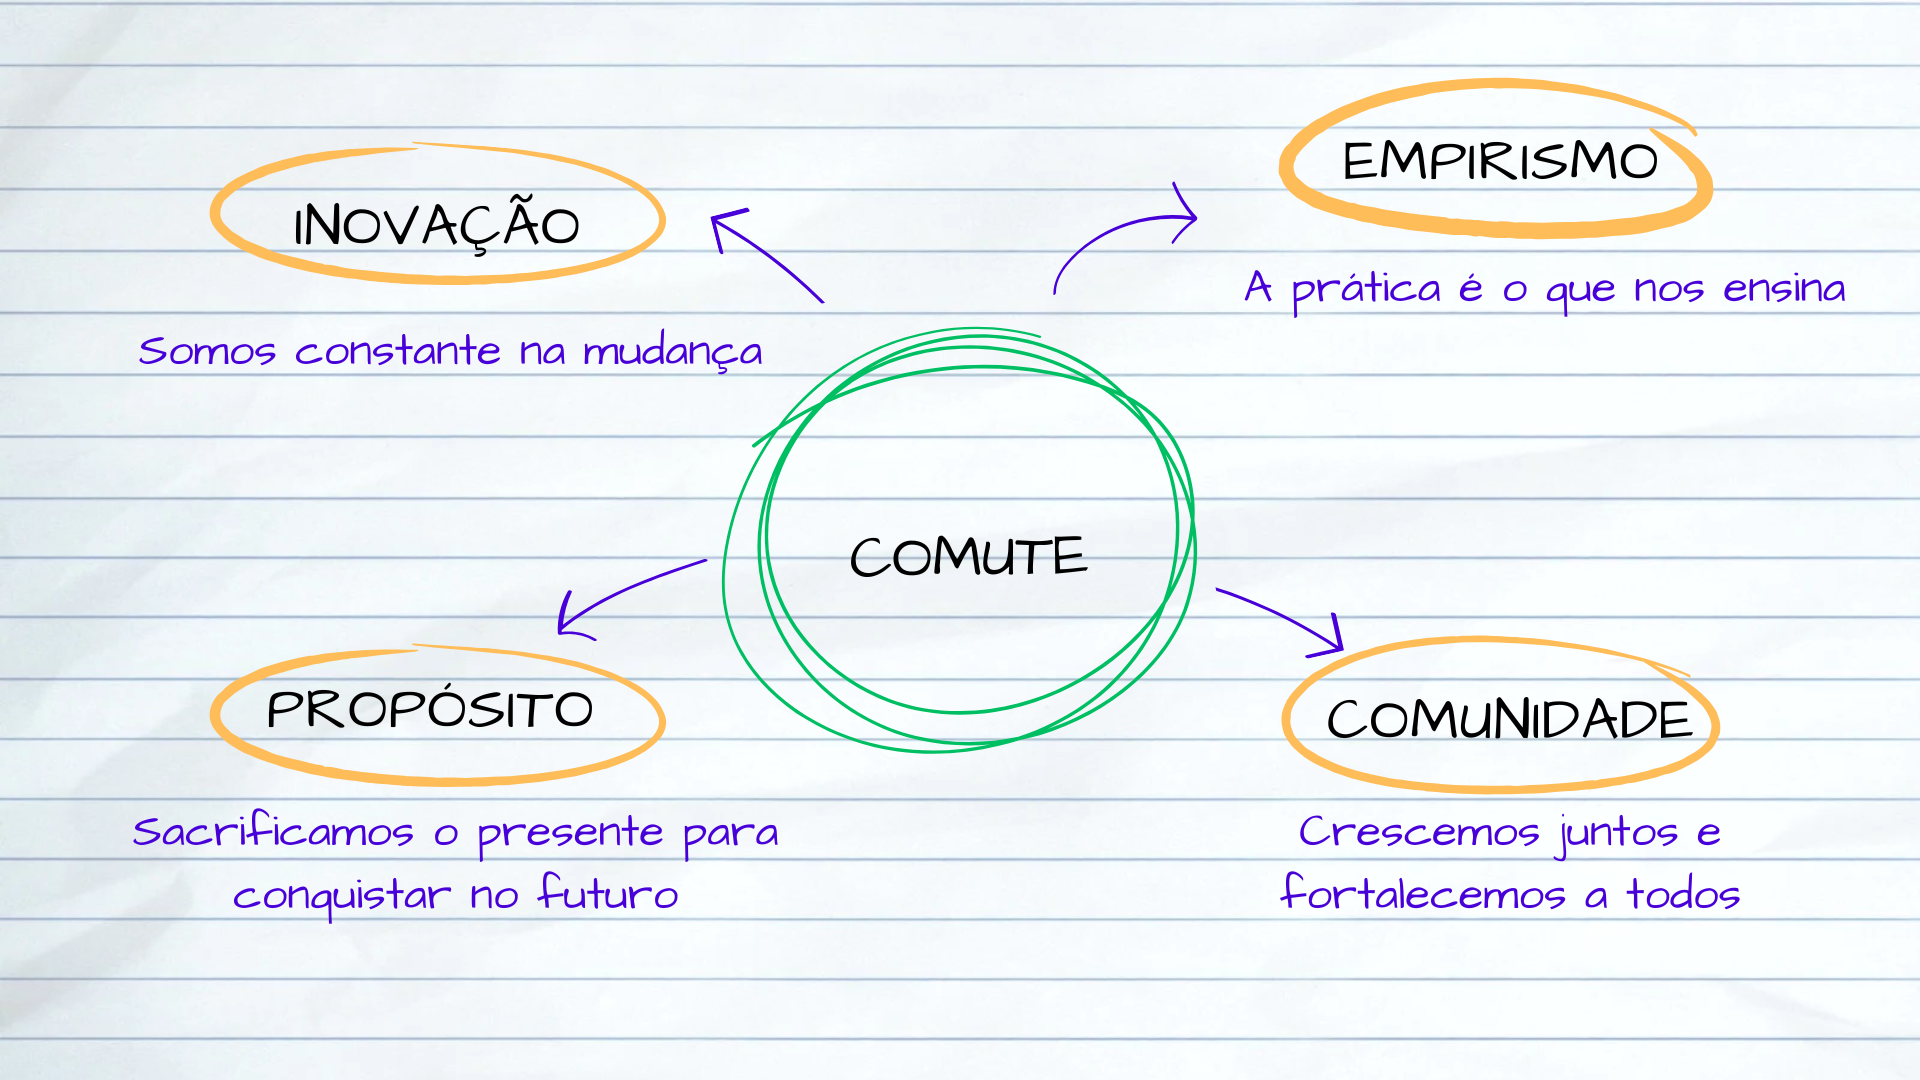 INOVAÇÃO
Somos constante na mudança
EMPIRISMO
A prática é o que nos ensina
COMUTE
PROPÓSITO
Sacrificamos o presente para
conquistar no futuro
COMUNIDADE
Crescemos juntos e
fortalecemos a todos